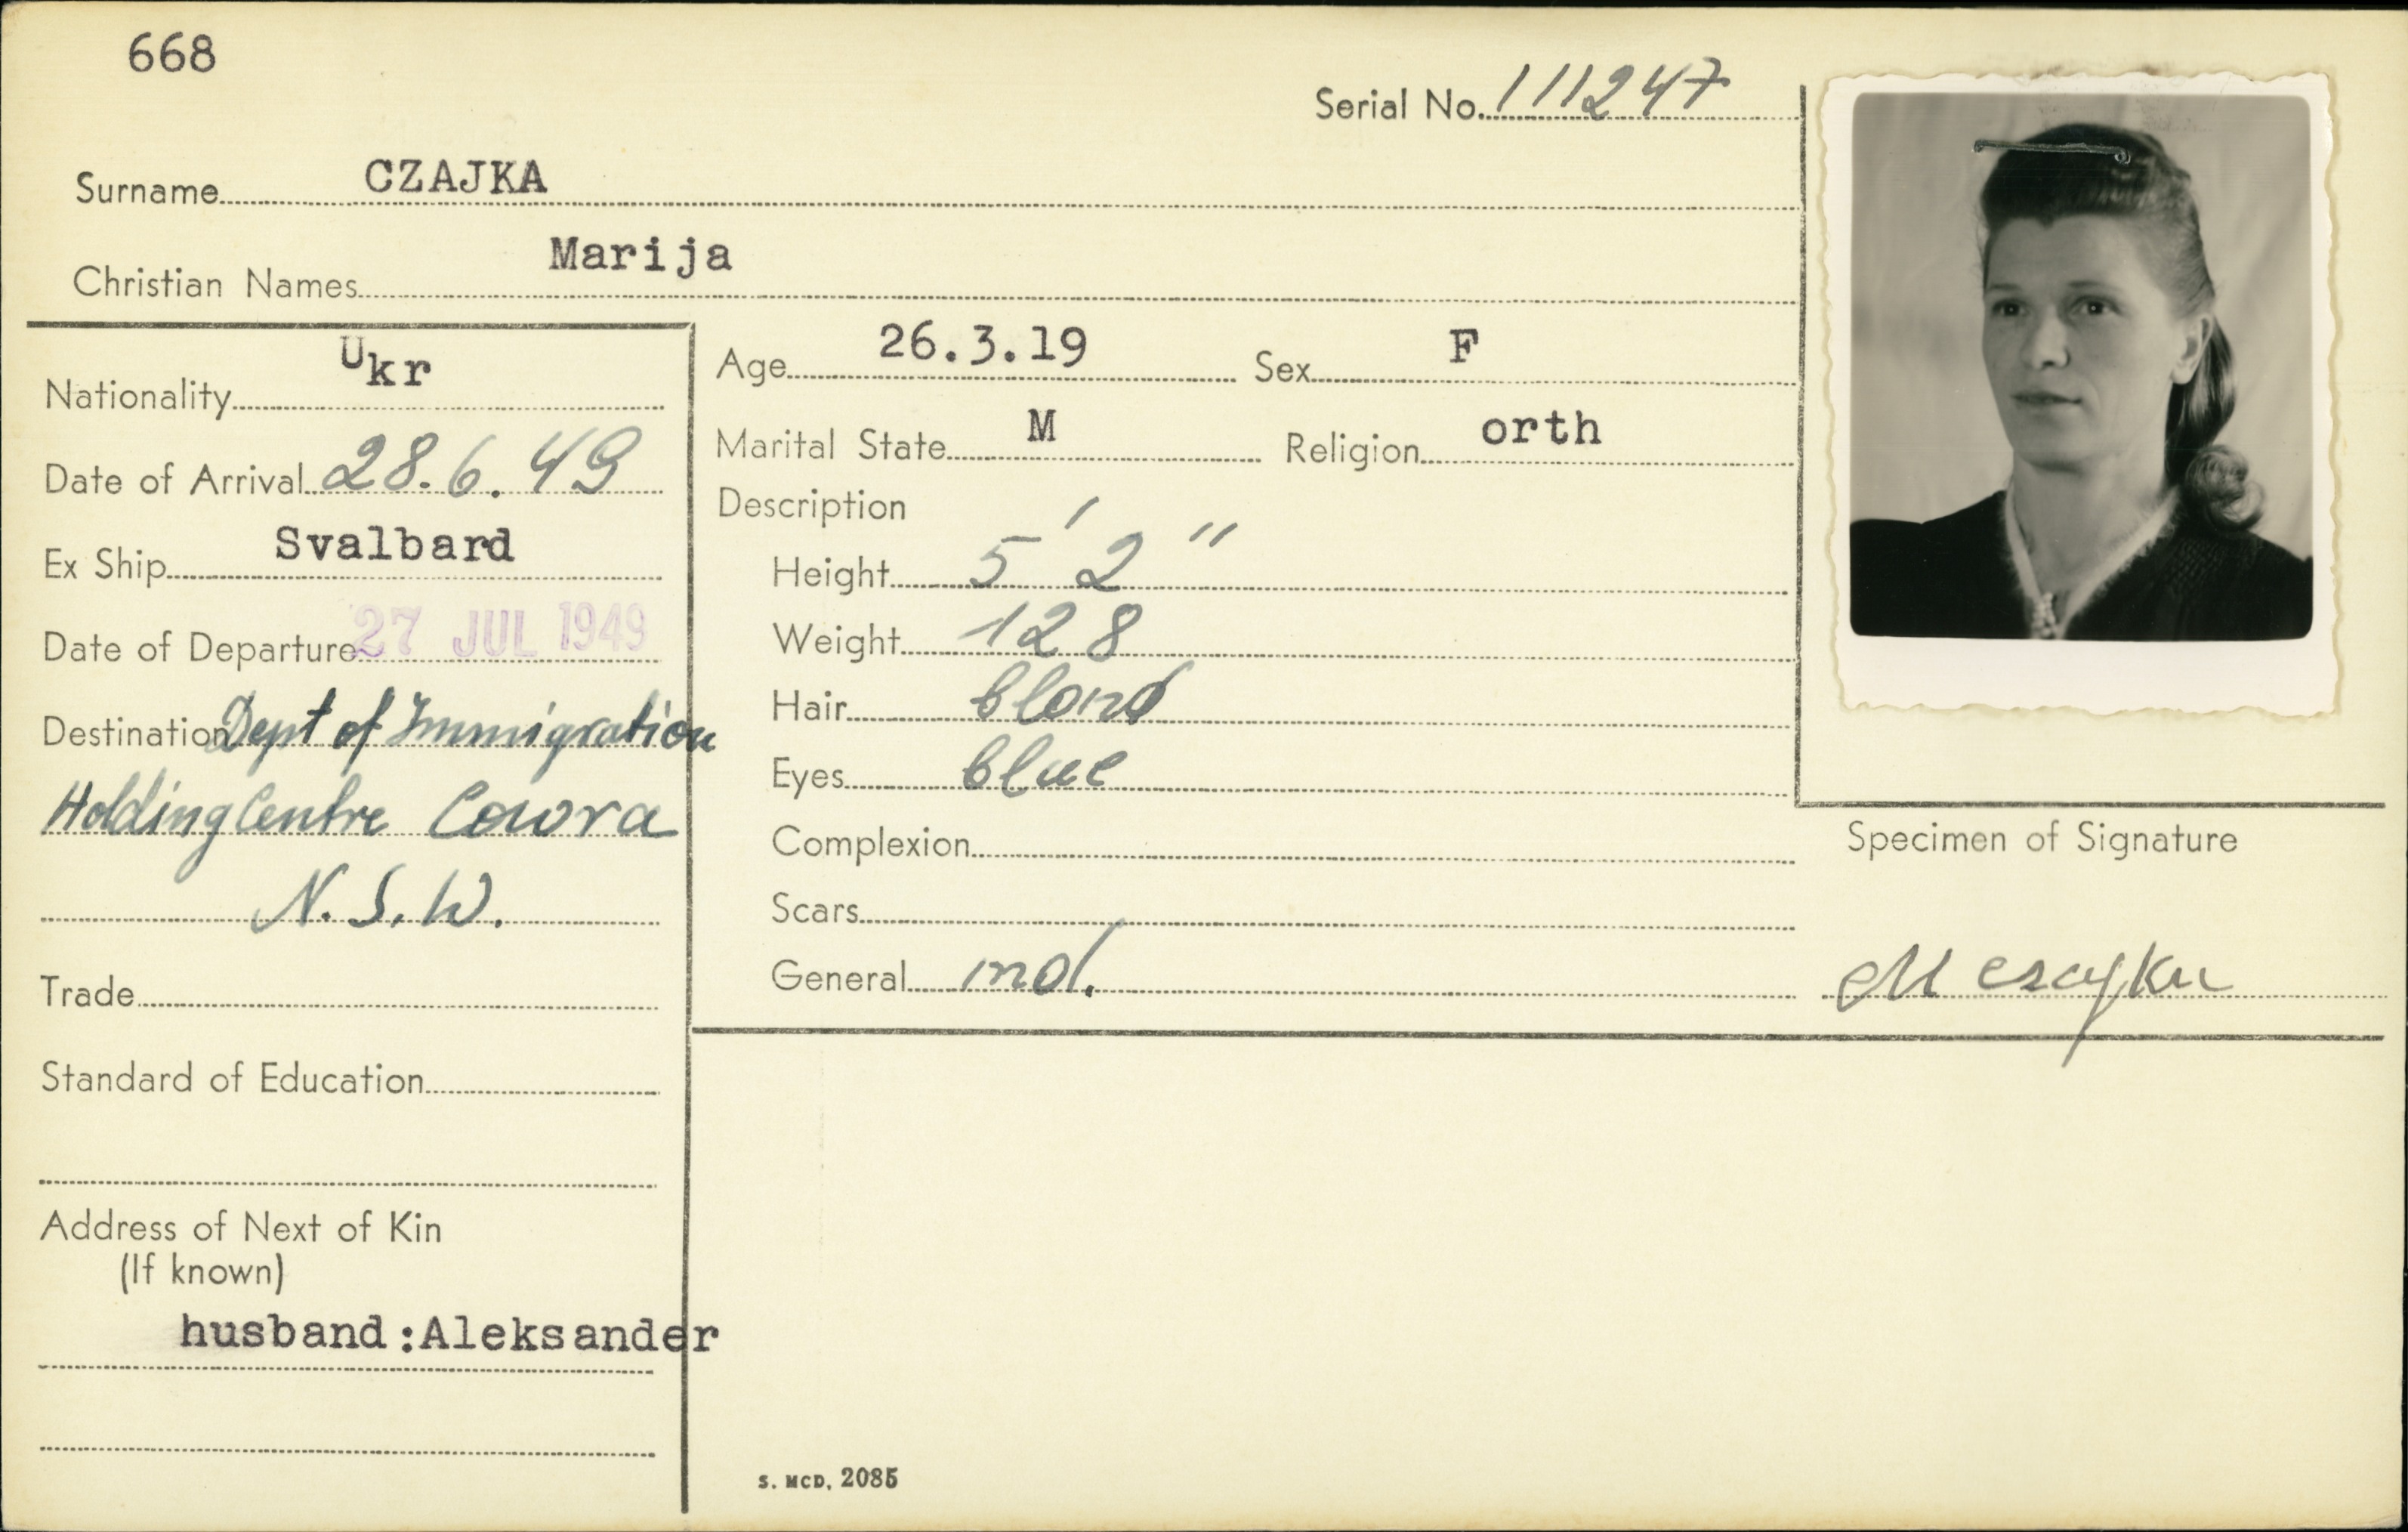 668
Serial No. 111247
Surname CZAJKA
Christian Names Marija
Nationality Ukr
Date of Arrival 28.6.49
Ex Ship Svalbard
Date of Departure 27 JUL 1949
Destination Dept of Immigration
Holding Centre Cowra
N.S.W.
Trade
Standard of Education
Address of Next of Kin
(If known)
husband:Aleksander
Age 26.3.19 Sex F
Marital State M Religion orth
Description
Height 5' 2"
Weight 128
Hair blond
Eyes blue
Complexion
Scars
General
Specimen of Signature
M Czajka
S. MCD. 2085